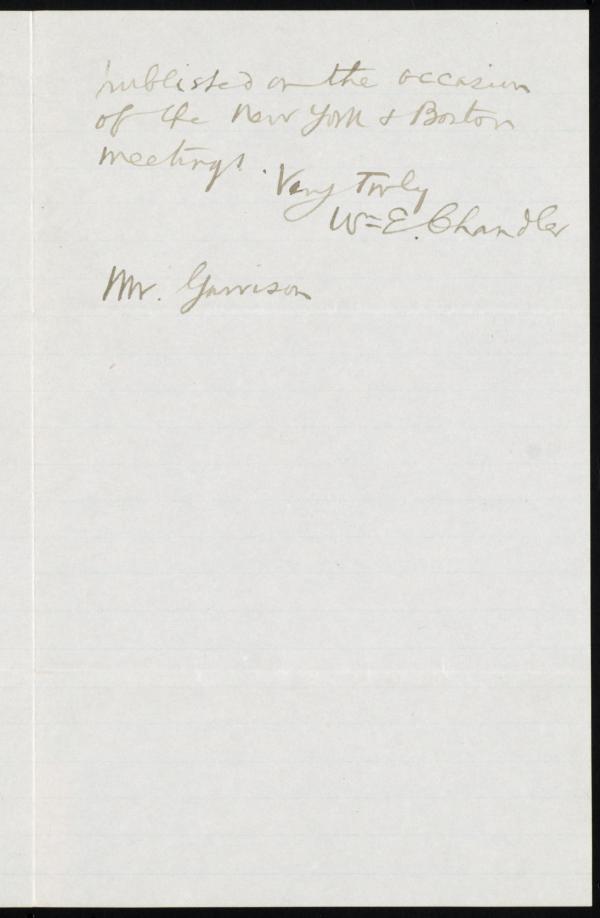 published on the occasion
of the New York & Boston
meetings. Very Truly
Wm E. Chandler
Mr. Garrison